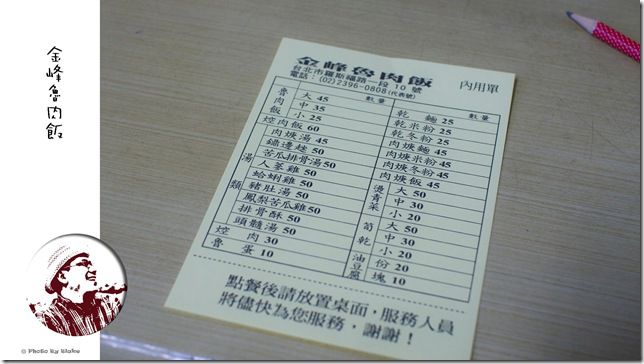 金峰魯肉飯
金峰魯肉飯
內用單
台北市羅斯福路一段 10 號
電話：(02)2396-0808(代表號)
數量
數量
魯肉飯
大 45
中 35
小 25
焢肉飯 60
湯類
肉焿湯 45
鎖邊趖 50
苦瓜排骨湯 50
人蔘雞 50
蛤蜊雞 50
豬肚湯 50
鳳梨苦瓜雞 50
排骨酥 50
頭髓湯 50
焢肉 30
魯蛋 10
乾麵 25
乾米粉 25
乾冬粉 25
肉焿麵 45
肉焿米粉 45
肉焿冬粉 45
肉焿飯 45
燙青菜
大 50
中 30
小 20
筍乾
大 50
中 30
小 20
油豆腐
份 20
塊 10
點餐後請放置桌面，服務人員
將儘快為您服務，謝謝！
© Photo By Blake